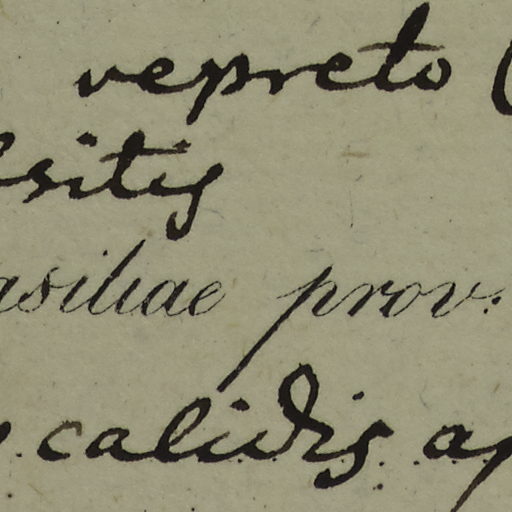 vepreto (
sitis
asiliae prov.
calidis ap